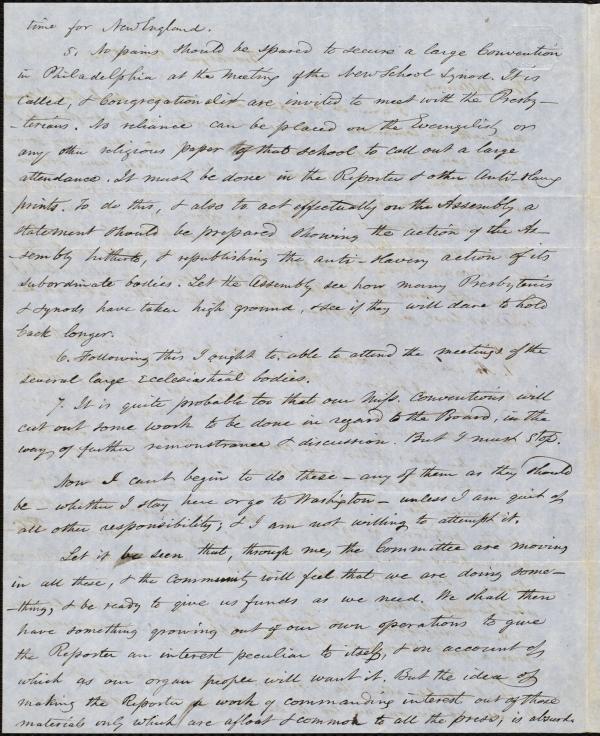 time for New England.
5. No pains should be spared to secure a large Convention
in Philadelphia at the meeting of the New School Synod. It is
called, & Congregationalist are invited to meet with the Presby-
-terians. No reliance can be placed on the Evangelist, or
any other religious paper of that school to call out a large
attendance. It must be done in the Reporter & other Anti-slavery
prints. To do this, & also to act effectually on the Assembly, a
statement should be prepared showing the action of the As-
-sembly hitherto, & republishing the anti-slavery action of its
subordinate bodies. Let the Assembly see how many Presbyteries
& Synods have taken high ground, & see if they will dare to hold
back longer.
6. Following this I ought to able to attend the meetings of the
several large ecclesiastical bodies.
7. It is quite probable too that our Miss. Conventions will
cut out some work to be done in regard to the Board, in the
way of further remonstrance & discussion. But I must stop.
Now I can't begin to do these - any of them as they should
be - whether I stay here or go to Washington - unless I am quit of
all other responsibility, & I am not willing to attempt it.
Let it be seen that, through me, the Committee are moving
in all these, & the community will feel that we are doing some-
-thing, & be ready to give us funds as we need. We shall then
have something growing out of our own operations to give
the Reporter an interest peculiar to itself, & on account of
which as our organ people will want it. But the idea of
making the Reporter a work of commanding interest out of those
materials only which are afloat & common to all the press, is absurd.